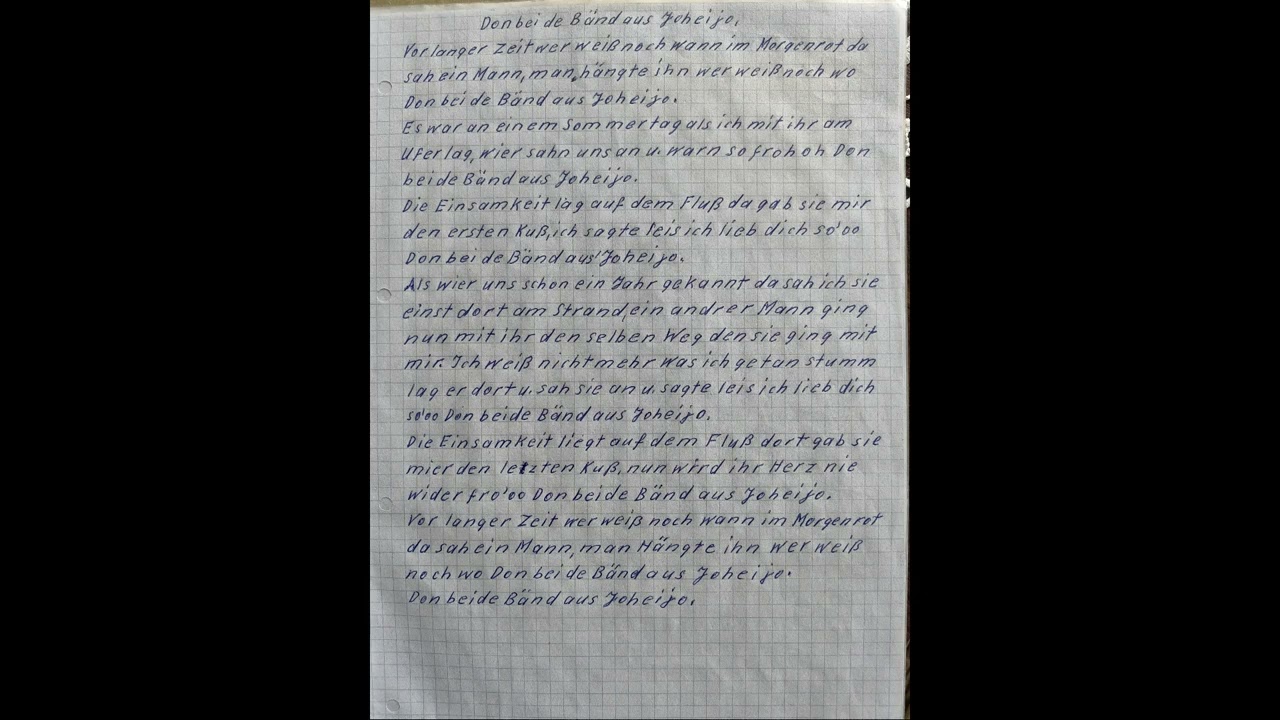 Don bei de Bänd aus Joheijo.
Vor langer Zeit wer weiß noch wann im Morgenrot da
sah ein Mann, man hängte ihn wer weiß noch wo
Don bei de Bänd aus Joheijo.
Es war an einem Sommertag als ich mit ihr am
Ufer lag, wier sahn uns an u. warn so froh oh Don
bei de Bänd aus Joheijo.
Die Einsamkeit lag auf dem Fluß da gab sie mir
den ersten Kuß, ich sagte leis ich lieb dich so'oo
Don bei de Bänd aus Joheijo.
Als wier uns schon ein Jahr gekannt da sah ich sie
einst dort am Strand, ein andrer Mann ging
nun mit ihr den selben Weg den sie ging mit
mir. Ich weiß nicht mehr was ich getan stumm
lag er dort u. sah sie an u. sagte leis ich lieb dich
so'oo Don beide Bänd aus Joheijo.
Die Einsamkeit liegt auf dem Fluß dort gab sie
mier den letzten Kuß, nun wird ihr Herz nie
wider fro'oo Don beide Bänd aus Joheijo.
Vor langer Zeit wer weiß noch wann im Morgenrot
da sah ein Mann, man Hängte ihn wer weiß
noch wo Don bei de Bänd aus Joheijo.
Don beide Bänd aus Joheijo.